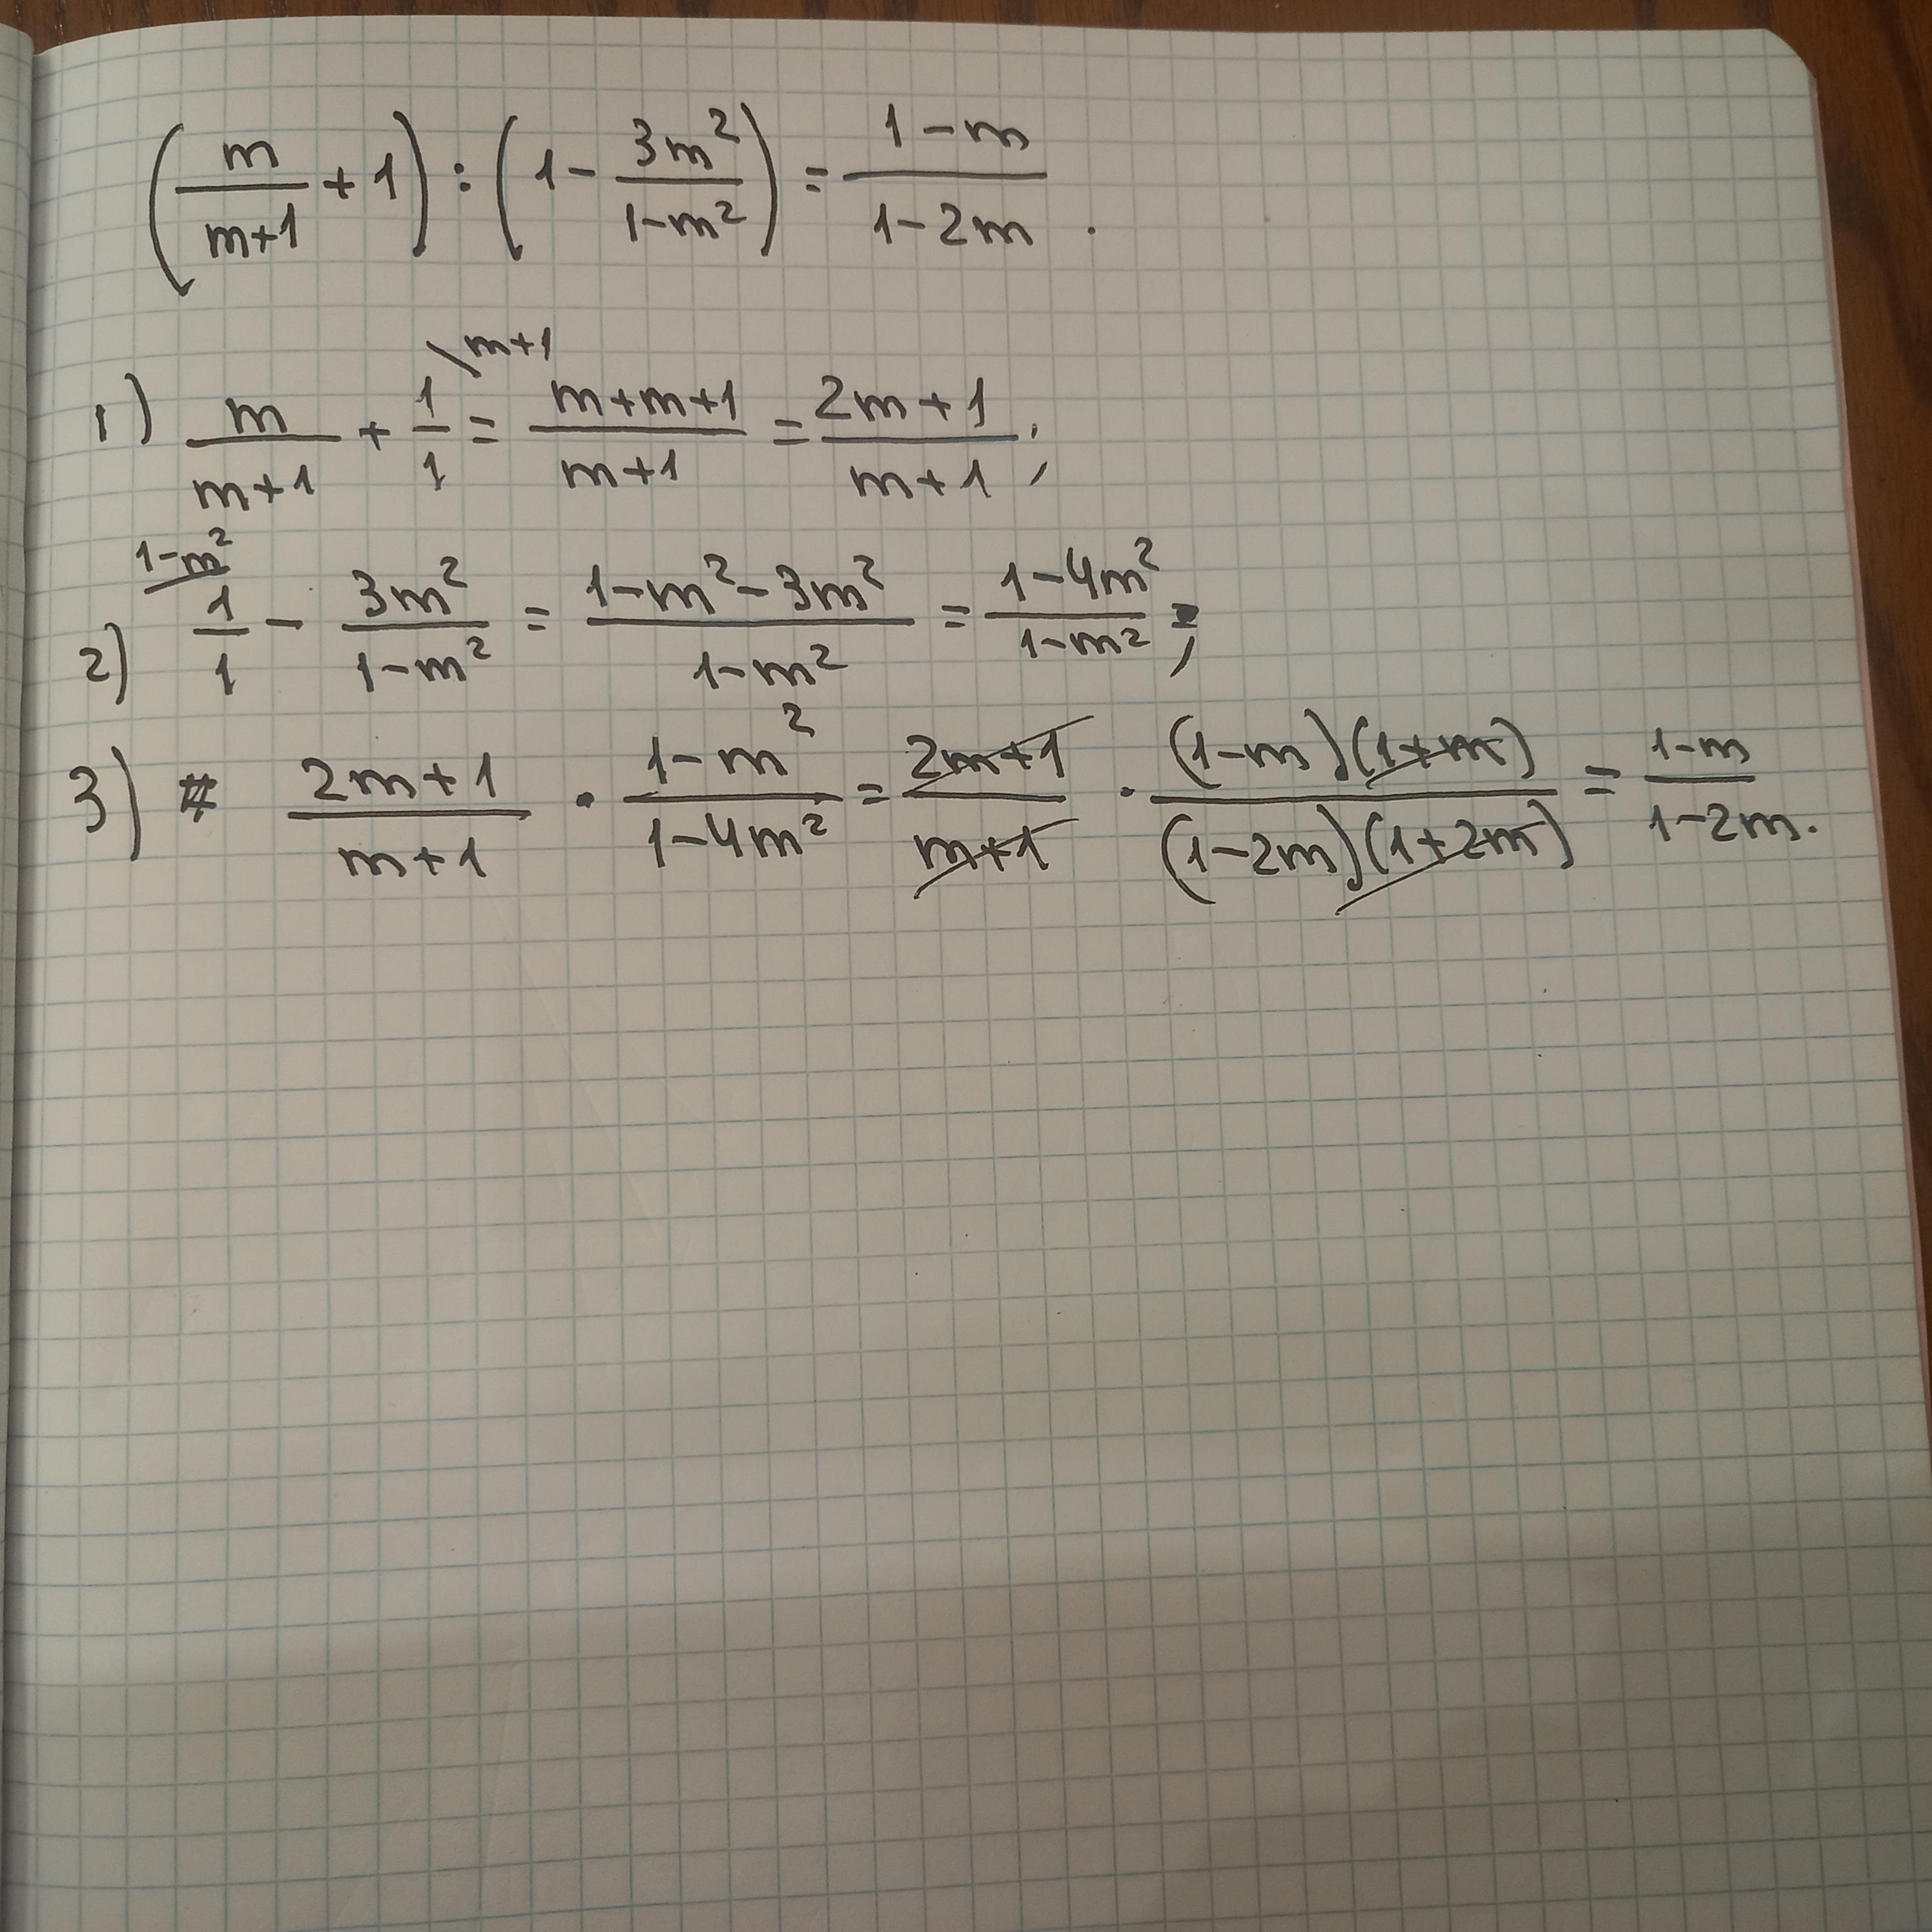 (m/(m+1) + 1) : (1 - 3m²/(1-m²)) = (1-m)/(1-2m) .
1) m/(m+1) + 1/1 \m+1 = (m+m+1)/(m+1) = (2m+1)/(m+1) ;
2) 1-m²/ 1/1 - 3m²/(1-m²) = (1-m²-3m²)/(1-m²) = (1-4m²)/(1-m²) ;
3) (2m+1)/(m+1) · (1-m²)/(1-4m²) = (2m+1)/(m+1) · ((1-m)(1+m))/((1-2m)(1+2m)) = (1-m)/(1-2m) .